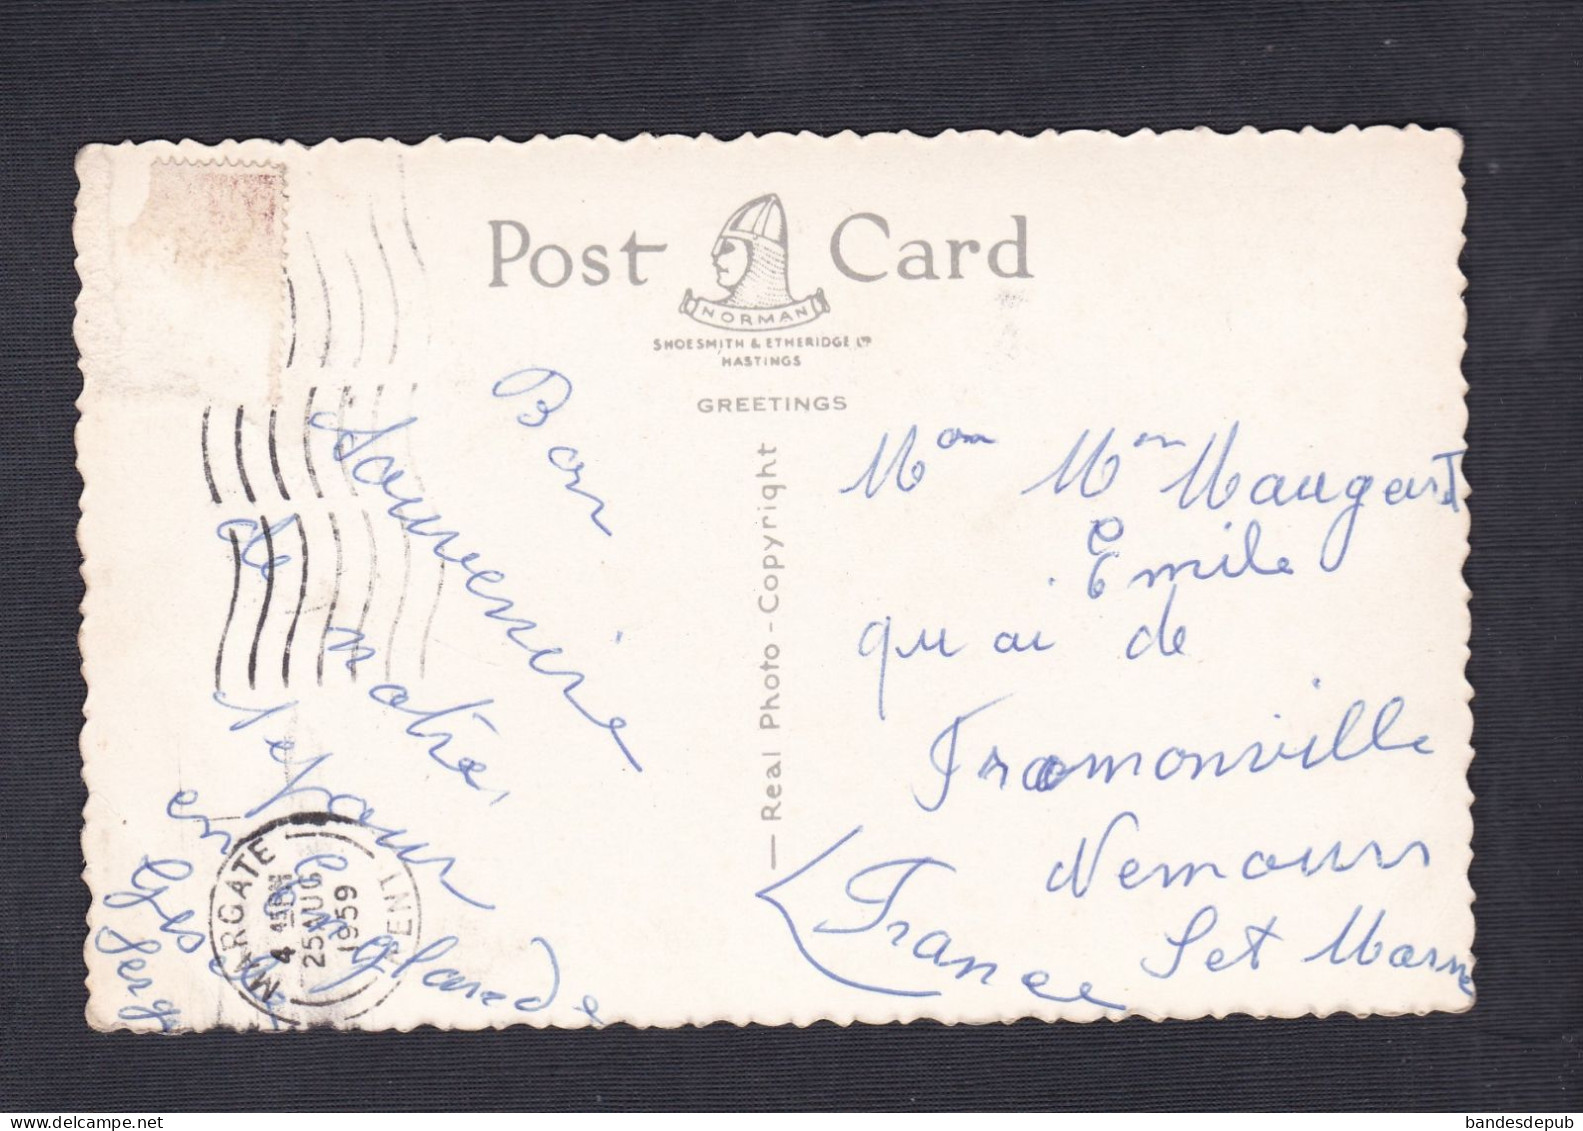 Post Card
NORMAN
SHOESMITH & ETHERIDGE LTD
HASTINGS
GREETINGS
— Real Photo - Copyright
Bon
Souvenire
de notre
sejour
en Englande
Serge
MARGATE
KENT
4 15 PM
25 AUG
1959
Mon Mm Maugart
Emile
quai de
Fromonville
Nemours
Set Marne
France
bandesdepub